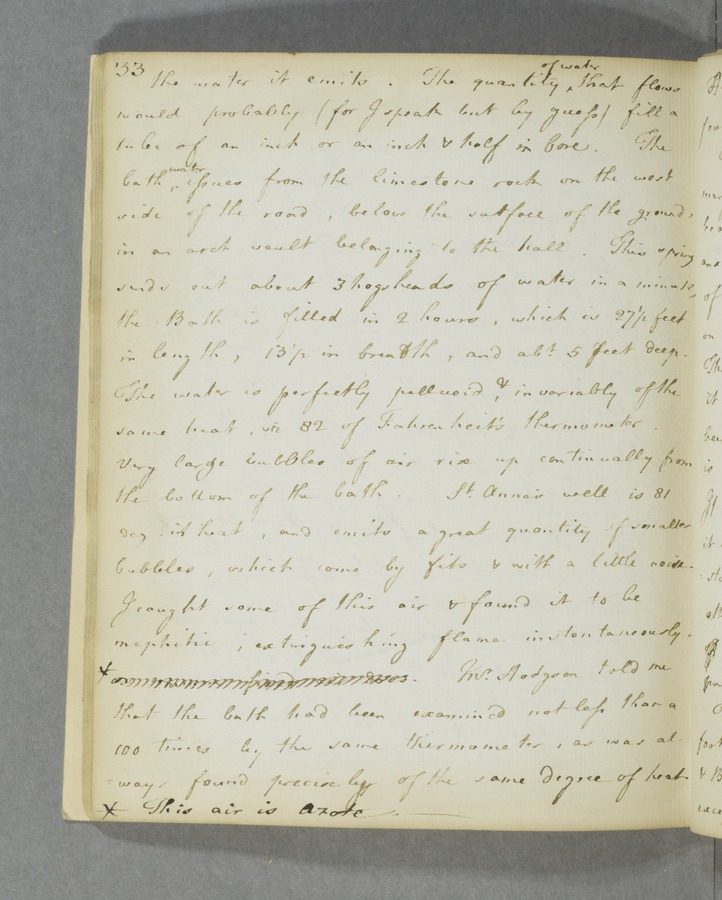 33
the water it emits. The quantity of water, that flows
would probably (for I speak but by guess) fill a
tube of an inch or an inch & half in bore. The
bath water, issues from the limestone rock on the west
side of the road, below the surface of the ground,
in an arch vault belonging to the hall. This spring
sends out about 3 hogsheads of water in a minute,
the Bath is filled in 2 hours, which is 27½ feet
in length, 13½ in breadth, and abt. 5 feet deep.
The water is perfectly pellucid, & invariably of the
same heat, viz 82 of Fahrenheit's thermometer.
Very large bubbles of air rise up continually from
the bottom of the bath. St. Anne's well is 81
deg. in heat, and emits a great quantity of smaller
bubbles, which come by fits & with a little noise.
I caught some of this air & found it to be
mephitic, extinguishing flame instantaneously.
+ Mr. Hodgson told me
that the bath had been examin'd not less than a
100 times by the same thermometer, as was al-
=ways found precisely of the same degree of heat.
+ This air is Azote